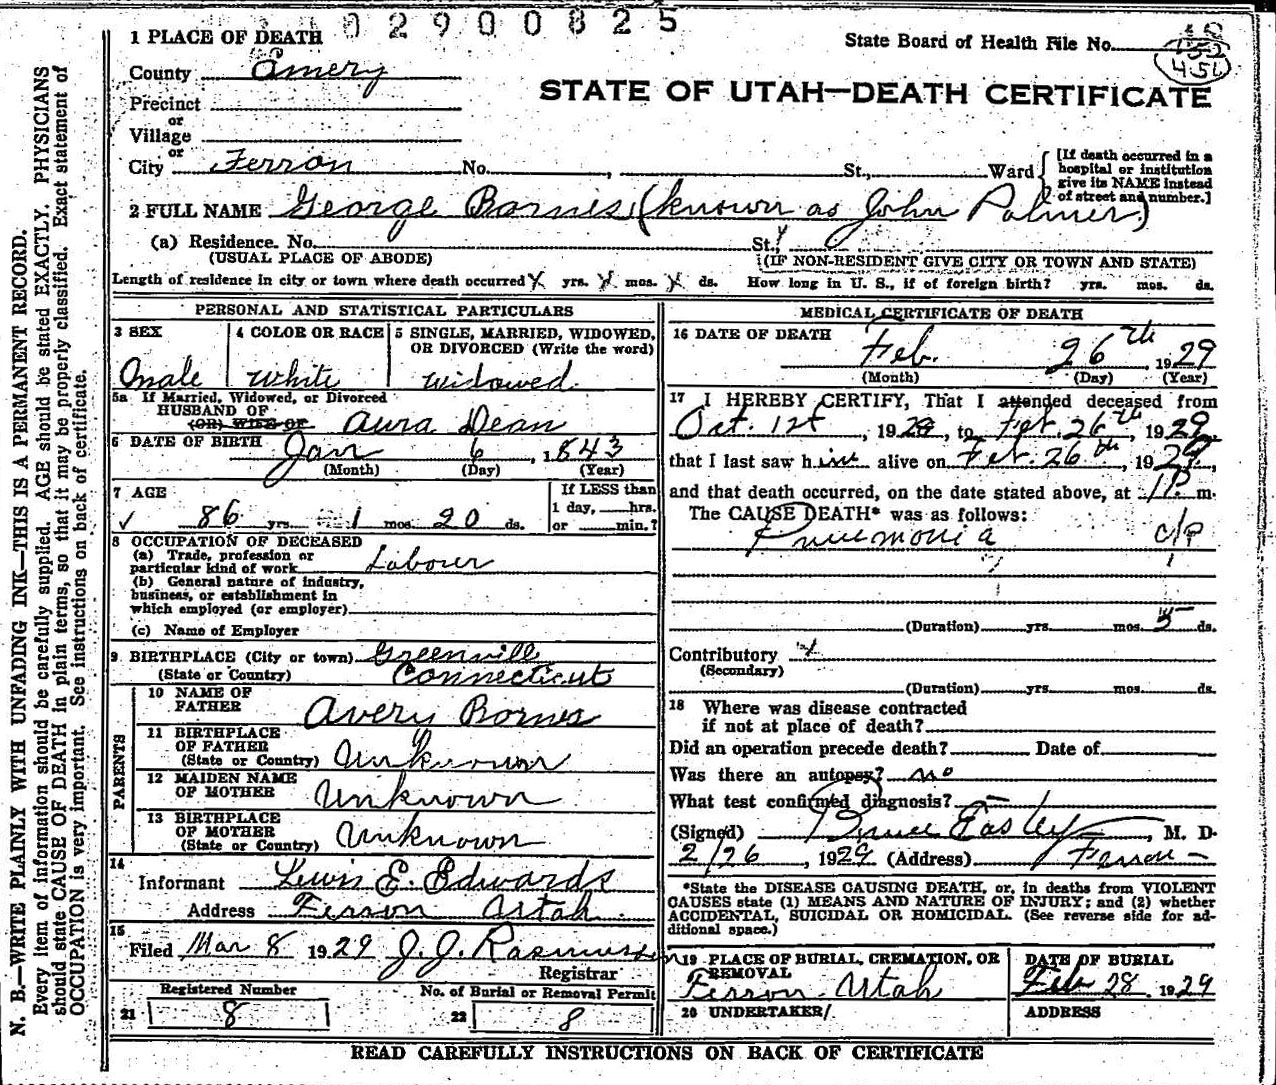 0 2 9 0 0 8 2 5
1 PLACE OF DEATH
State Board of Health File No.
456
County Emery
STATE OF UTAH—DEATH CERTIFICATE
Precinct
or
Village
or
City Ferron No. , St., Ward
[If death occurred in a
hospital or institution
give its NAME instead
of street and number.]
2 FULL NAME George Barnes (known as John Palmer)
(a) Residence. No. St.,
(USUAL PLACE OF ABODE) (IF NON-RESIDENT GIVE CITY OR TOWN AND STATE)
Length of residence in city or town where death occurred x yrs. x mos. x ds. How long in U. S., if of foreign birth? yrs. mos. ds.
PERSONAL AND STATISTICAL PARTICULARS
3 SEX 4 COLOR OR RACE 5 SINGLE, MARRIED, WIDOWED,
OR DIVORCED (Write the word)
Male White Widowed.
5a If Married, Widowed, or Divorced
HUSBAND OF
(OR) WIFE OF Aura Dean
6 DATE OF BIRTH Jan 6, 1843
(Month) (Day) (Year)
7 AGE If LESS than
1 day, hrs.
✓ 86 yrs. 1 mos. 20 ds. or min.?
8 OCCUPATION OF DECEASED
(a) Trade, profession or
particular kind of work Labourer
(b) General nature of industry,
business, or establishment in
which employed (or employer)
(c) Name of Employer
9 BIRTHPLACE (City or town) Greenvill
(State or Country) Connecticut
PARENTS
10 NAME OF
FATHER Avery Barnes
11 BIRTHPLACE
OF FATHER
(State or Country) Unknown
12 MAIDEN NAME
OF MOTHER Unknown
13 BIRTHPLACE
OF MOTHER
(State or Country) Unknown
14
Informant Lewis E. Edwards
Address Ferron Utah.
15
Filed Mar 8 1929 J. J. Rasmussen
Registrar
Registered Number No. of Burial or Removal Permit
21 8 22 8
MEDICAL CERTIFICATE OF DEATH
16 DATE OF DEATH Feb. 26th 1929
(Month) (Day) (Year)
17 I HEREBY CERTIFY, That I attended deceased from
Oct. 1st, 1928, to Feb. 26th, 1929
that I last saw him alive on Feb. 26th, 1929,
and that death occurred, on the date stated above, at 1 P. m.
The CAUSE DEATH* was as follows:
Pneumonia
(Duration) yrs. mos. 5 ds.
Contributory x
(Secondary)
(Duration) yrs. mos. ds.
18 Where was disease contracted
if not at place of death?
Did an operation precede death? Date of
Was there an autopsy? no
What test confirmed diagnosis? —
(Signed) Bruce Easley, M. D.
2/26, 1929 (Address) Ferron
*State the DISEASE CAUSING DEATH, or, in deaths from VIOLENT
CAUSES state (1) MEANS AND NATURE OF INJURY; and (2) whether
ACCIDENTAL, SUICIDAL OR HOMICIDAL. (See reverse side for ad-
ditional space.)
19 PLACE OF BURIAL, CREMATION, OR
REMOVAL
Ferron Utah
DATE OF BURIAL
Feb 28. 1929
20 UNDERTAKER ADDRESS
READ CAREFULLY INSTRUCTIONS ON BACK OF CERTIFICATE
N. B.—WRITE PLAINLY WITH UNFADING INK—THIS IS A PERMANENT RECORD.
Every item of information should be carefully supplied. AGE should be stated EXACTLY. PHYSICIANS
should state CAUSE OF DEATH in plain terms, so that it may be properly classified. Exact statement of
OCCUPATION is very important. See instructions on back of certificate.